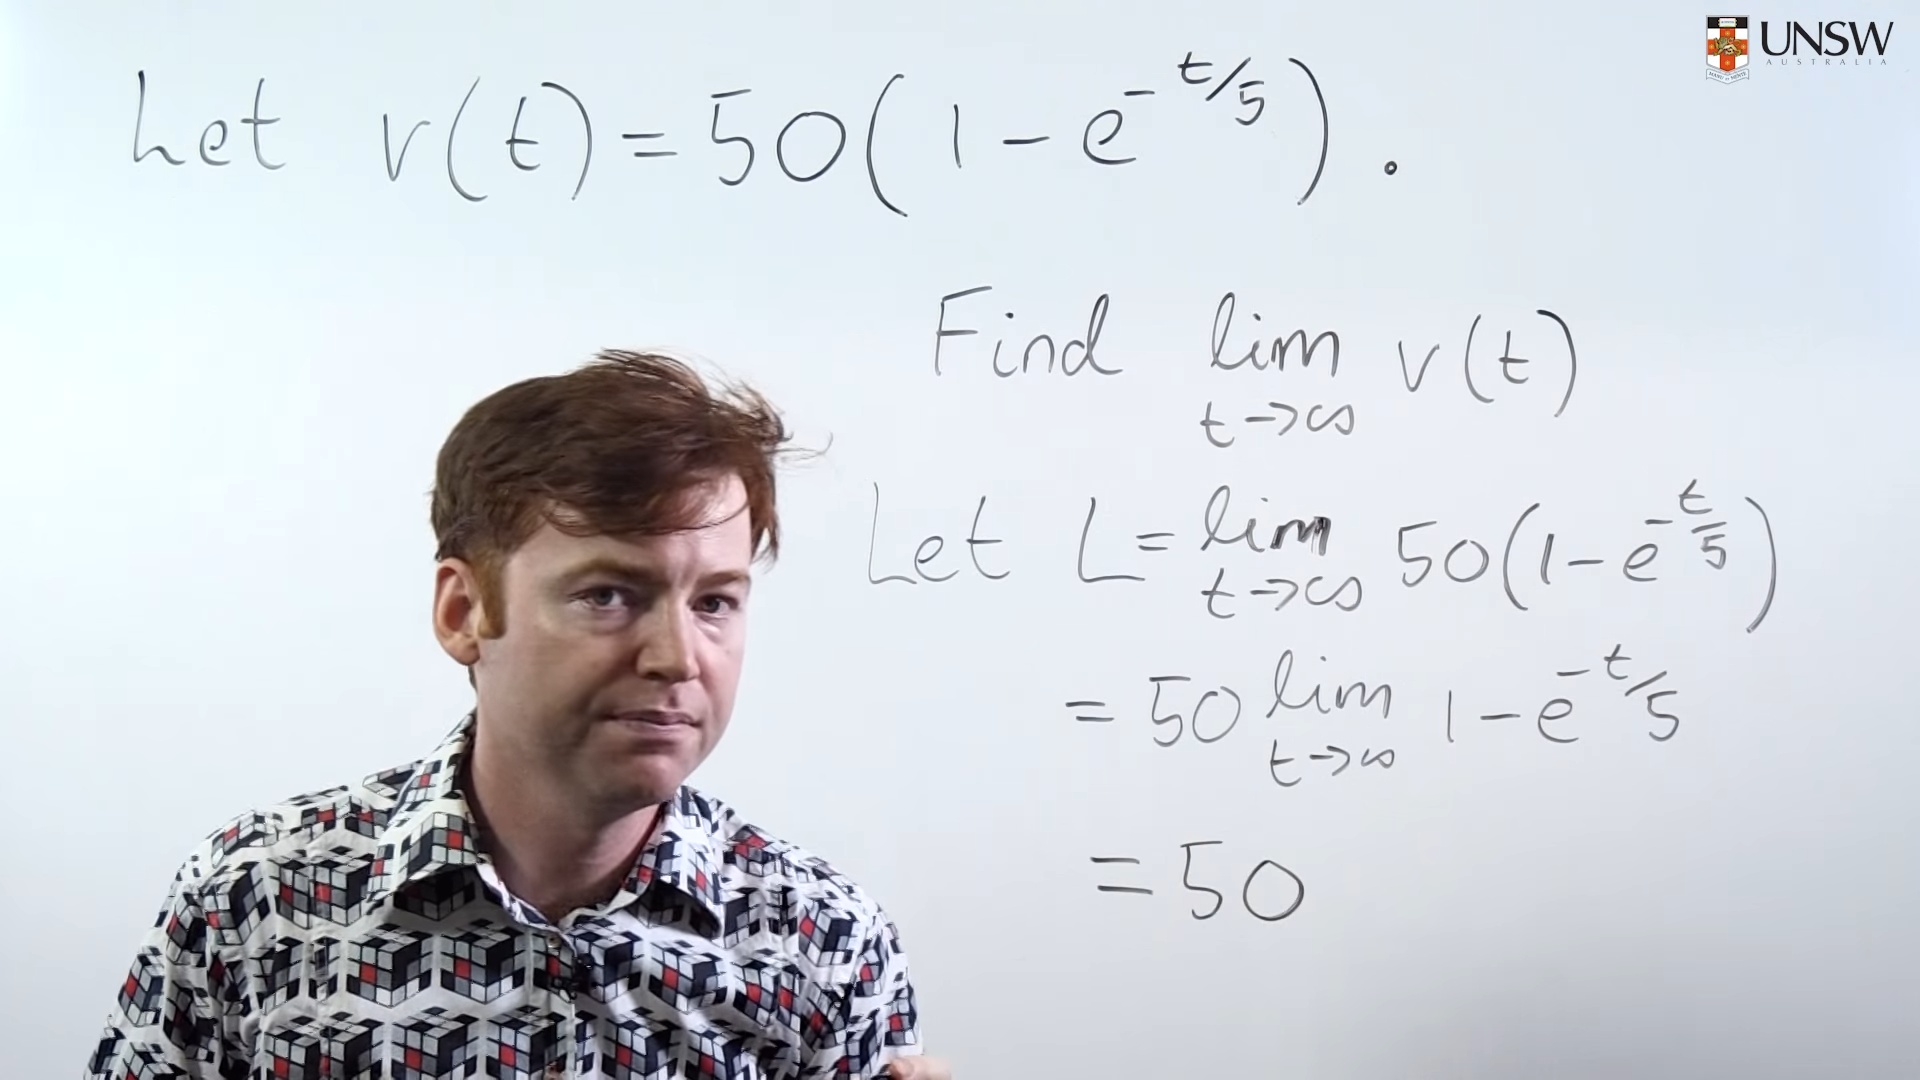 UNSW
AUSTRALIA
Let v(t) = 50(1 - e^{-t/5}).
Find lim_{t→∞} v(t)
Let L = lim_{t→∞} 50(1 - e^{-t/5})
= 50 lim_{t→∞} 1 - e^{-t/5}
= 50